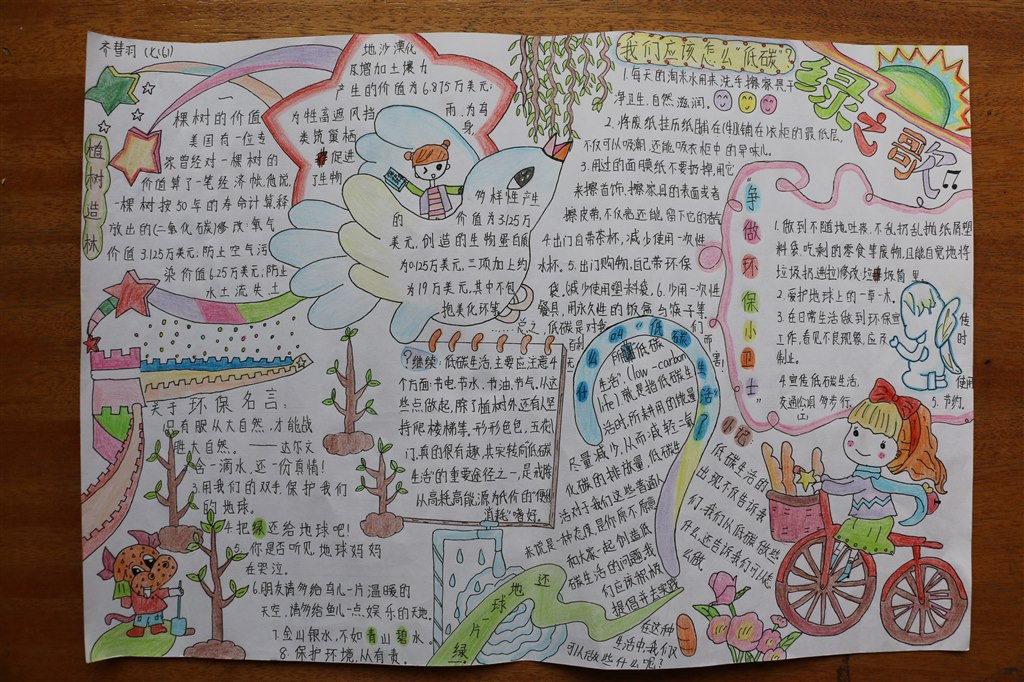 齐彗羽 (七、6)
植树造林
一棵树的价值
美国有一位专
家曾经对一棵树的
价值算了一笔经济帐,他说,
一棵树按50年的寿命计算,释
放出的(二氧化碳)修改:氧气
价值3.125万美元,防止空气污
染价值6.25万美元,防止
水土流失,土
地沙漠化
及增加土壤力
产生的价值为6.875万美元;
为牲畜遮风挡雨,为鸟
类筑巢栖身,
促进
了生物
多样性产生
的价值为3.125万
美元,创造的生物蛋白质
为0.125万美元,三项加上约
为19万美元,其中不包
抱美化环等
我们应该怎么"低碳"?
1.每天的淘米水用来洗手擦家具干
净卫生.自然滋润。
2.将废纸挂历纸铺在衣柜的最低层,
不仅可以吸潮,还能吸衣柜中的异味儿。
3.用过的面膜纸不要扔掉,用它
来擦首饰、擦家具的表面或者
擦皮带,不仅亮还能留下它的香气
4.出门自带茶杯,减少使用一次性
水杯。5.出门购物,自己带环保
袋,减少使用塑料袋。6.少用一次性
餐具,用永久性的饭盒与筷子等。
绿之歌
争做环保小卫士
1.做到不随地吐痰,不乱扔乱抛纸屑塑
料袋,吃剩的零食等废物,且能自觉地将
垃圾扔进垃圾筒里
2.爱护地球上的一草一木。
3.在日常生活做到环保宣传
工作,看见不良现象,应及时
制止。
4.宣传低碳生活,使用
交通公具多步行。5.节约。
?继续:低碳生活,主要应注意4
个方面:节电、节水、节油、节气。从这
些点做起,除了植树外还有人坚
持爬楼梯等。形形色色,五花八
门,真的很有趣,其实转向低碳
生活的重要途径之一,是戒除
从高耗高能源为代价的"便利
消耗"嗜好。
什么的"低碳生活"?
所谓低碳
生活"(low-carbon
life)就是指低碳生
活时所耗用的能量
尽量减少,从而减轻二氧
化碳的排放量,低碳生
活对于我们这些普通人
来说是一种态度,是你原不愿意
和大家一起创造低
碳生活的问题,我
们应该积极
提倡并去实践
在这种
生活中,我们
可以做些什么呢?
小记
低碳生活的
出现不仅告诉我
们,我们从低碳做些
什么,还告诉我们可以怎
么做。
关于环保名言:
1.只有服从大自然,才能战
胜大自然。——达尔文
2.舍一滴水,还一份真情!
3.用我们的双手保护我们
的地球。
4.把绿还给地球吧!
5.你是否听见地球妈妈
在哭泣。
6.朋友请多给鸟儿一片温暖的
天空,请多给鱼儿一点娱乐的天地。
7.金山银水,不如青山碧水。
8.保护环境,从有责。
还地球一片绿